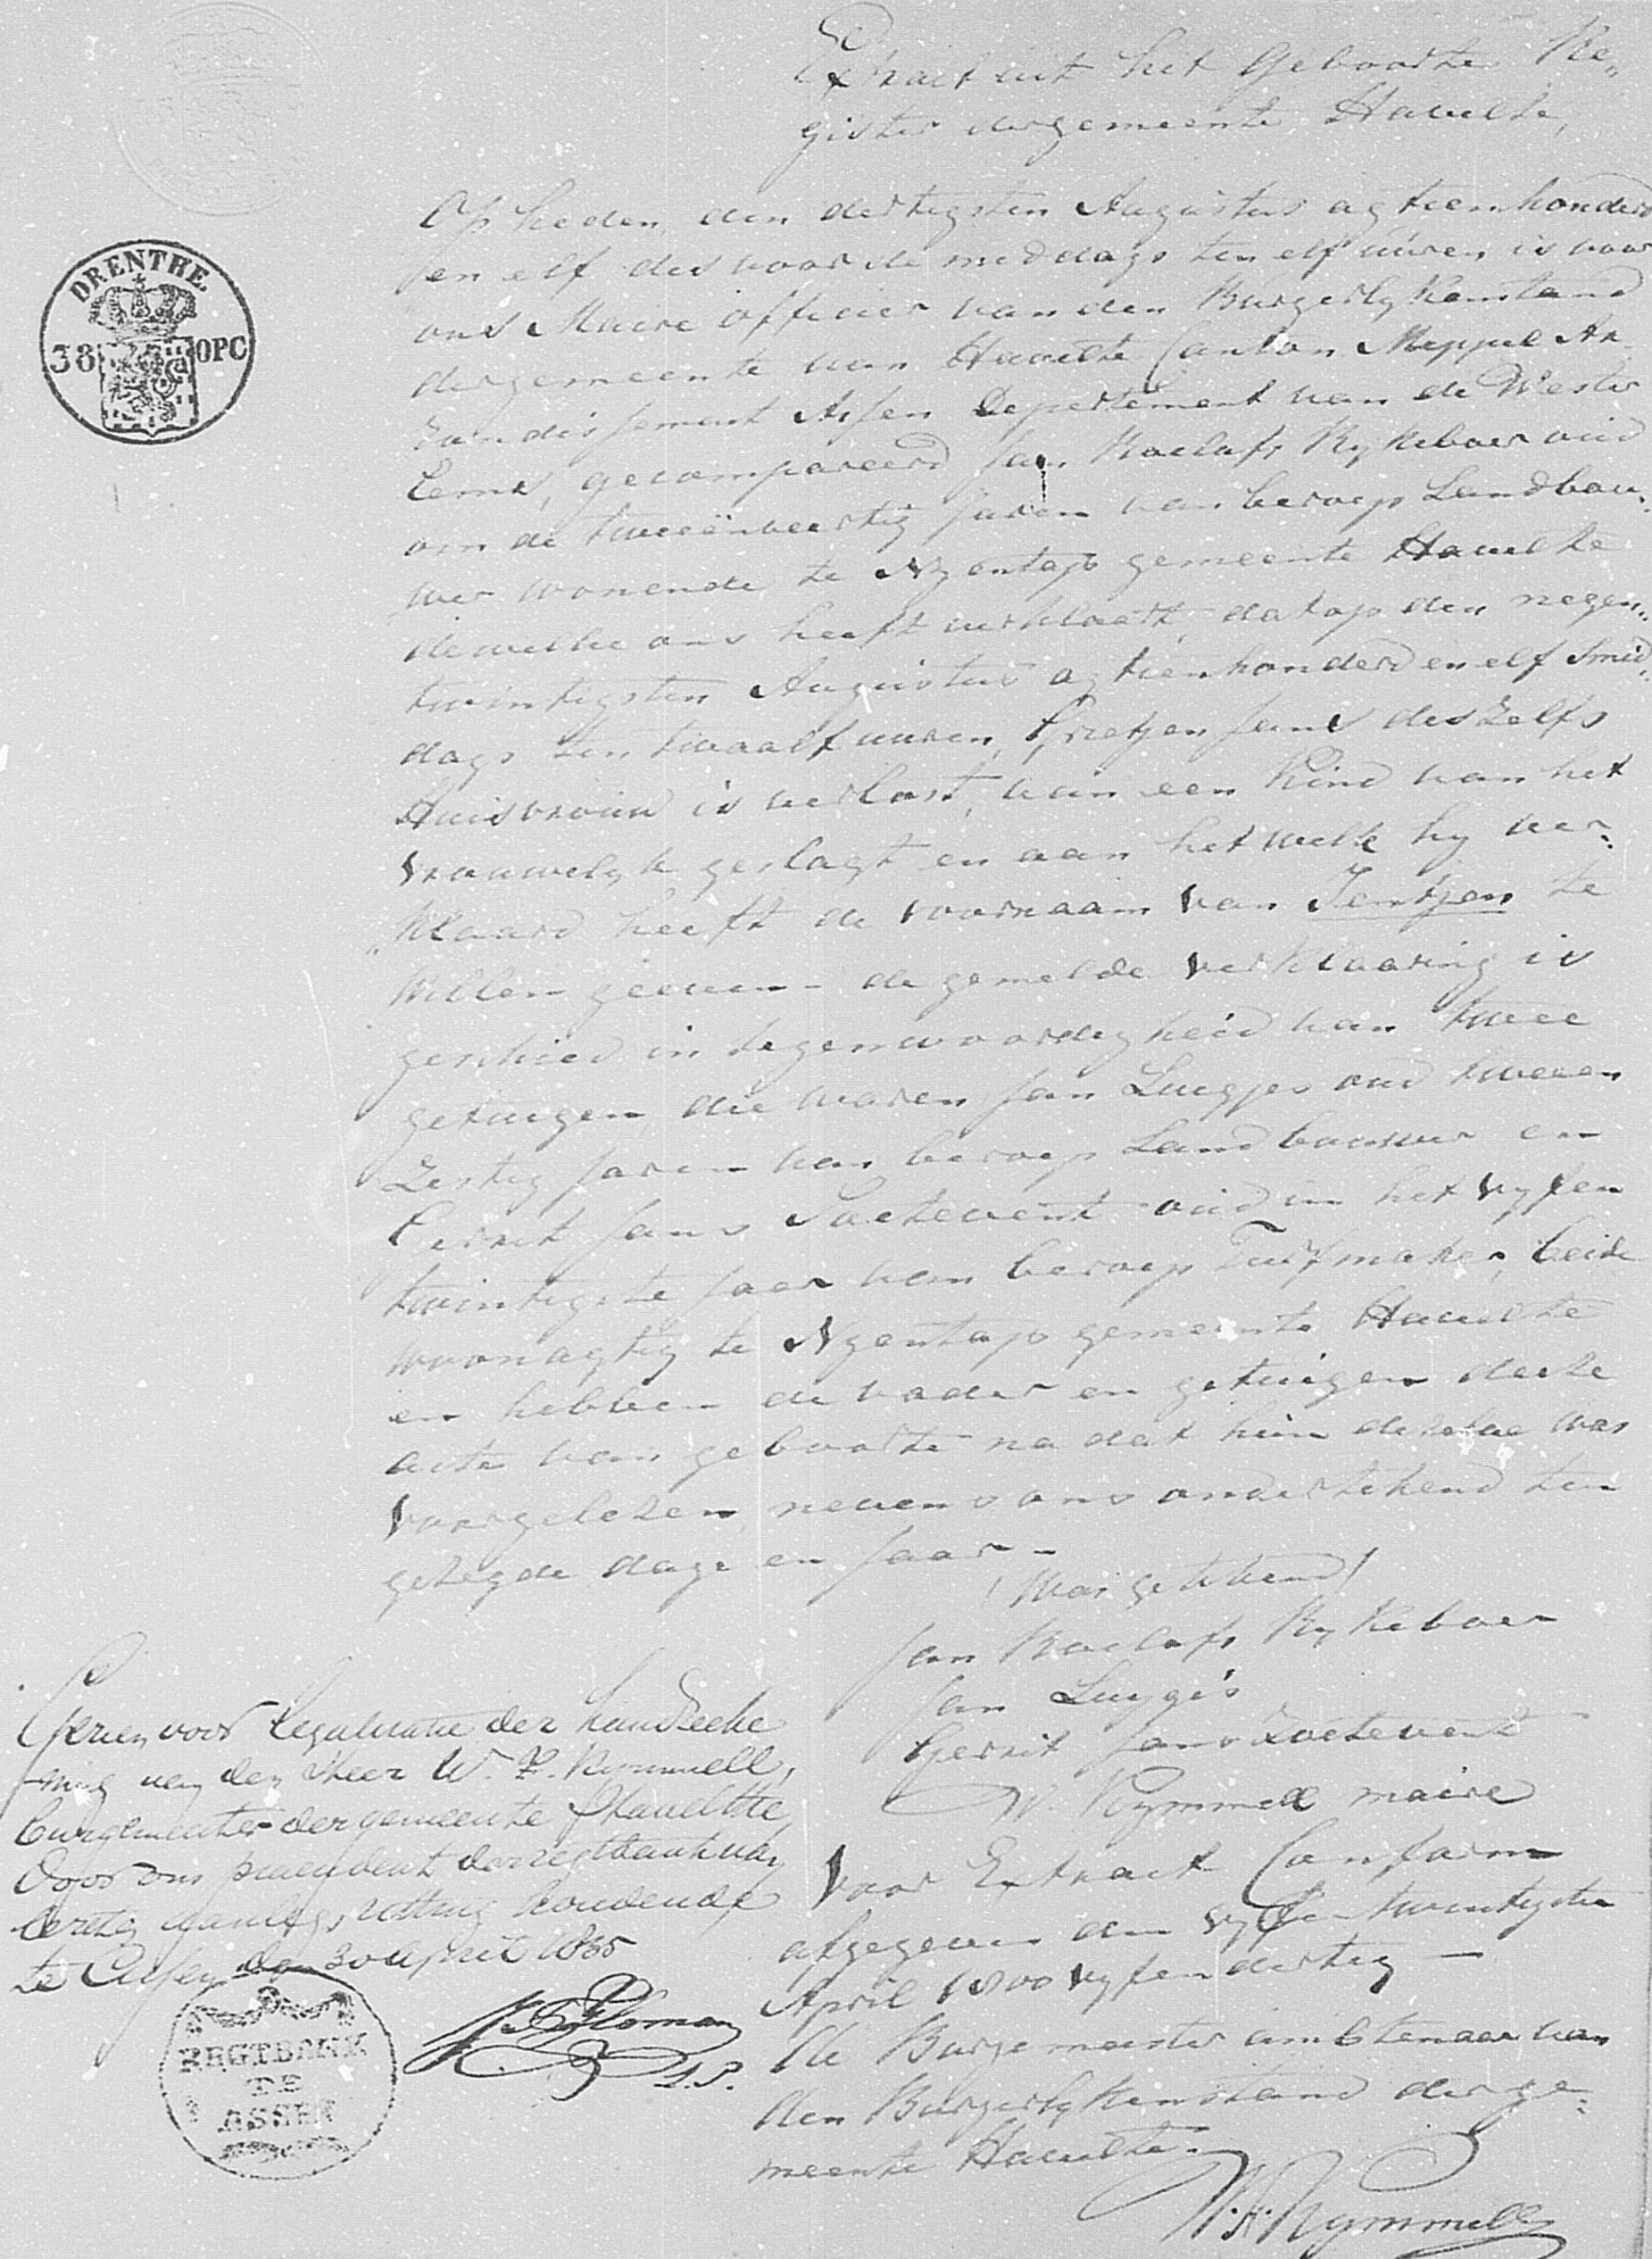 Extract uit het Geboorte Re„
gister dergemeente Havelte,
Op heden den dertigsten Augustus agtienhonderd
en elf des voordemiddags ten elf uuren is voor
ons Maire officier van den Burgerlyken stand
dergemeente van Havelte Canton Meppel Ar
rondissement Assen Departement van de Wester
Eems, gecompareerd Jan Roelofs Rykeboer oud
om de tweeënveertig Jaren van beroep Landbou„
wer wonende te Nyentap gemeente Havelte
dewelke ons heeft verklaart, dat op den negen„
twintigsten Augustus agtienhonderd en elf Smid„
dags ten twaalf uuren, Grietjen Jans deszelfs
Huisvrouw is verlost, van een Kind van het
vrouwelyk geslagt en aan het welk hy ver„
„klaard heeft de voornaam van Jentjen te
willen geeven – de gemelde verklaaring is
geschied in tegenwoordigheid van twee
getuigen die waren Jan Luegjes oud tweeen
Zestig Jaren van beroep Landbouwer en
Gerrit Jans Soetevent oud in het vyfen
twintigste Jaar van beroep Turfmaker, beide
woonagtig te Nyentap gemeente Havelte
en hebben de vader en getuigen deeze
acte van geboorte na dat hun dezelve was
voorgelezen nevens ons ondertekend ten
gezegde dage en Jaar –
/Was getekend/
Jan Roelofs Rykeboer
Jan Luygi's
Gerrit Jans Zoetevent
W. Kymmell maire
Voor Extract Conform
afgegeven den vyfentwintigsten
April 1800 vyfendertig —
De Burgemeester ambtenaar van
den Burgerlykenstand derge„
meente Havelte.
W. A. Kymmell
Gezien voor legalisatie der handteeke
ning van den Heer W. A. Kymmell,
burgemeester der gemeente Havelte
door ons president der regtbank van
eersten aanleg, zitting houdende
te Assen den 30 April 1835
L.P.
DRENTHE
38 OPC
REGTBANK
TE
ASSEN